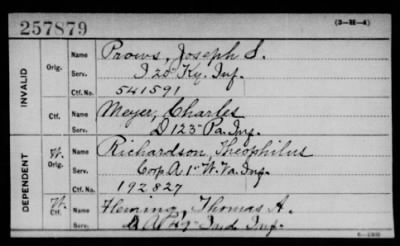 257879 (3-H-4)
INVALID
Orig. Name Prows, Joseph S.
Serv. I 20" Ky. Inf.
Ctf. No. 541591
Ctf. Name Meyer, Charles
Serv. D 123" Pa. Inf.
DEPENDENT
W. Orig. Name Richardson, Theophilus
Serv. Corp A 1" W. Va. Inf.
Ctf. No. 192827
W. Ctf. Name Fleming, Thomas A.
Serv. Ind Inf.